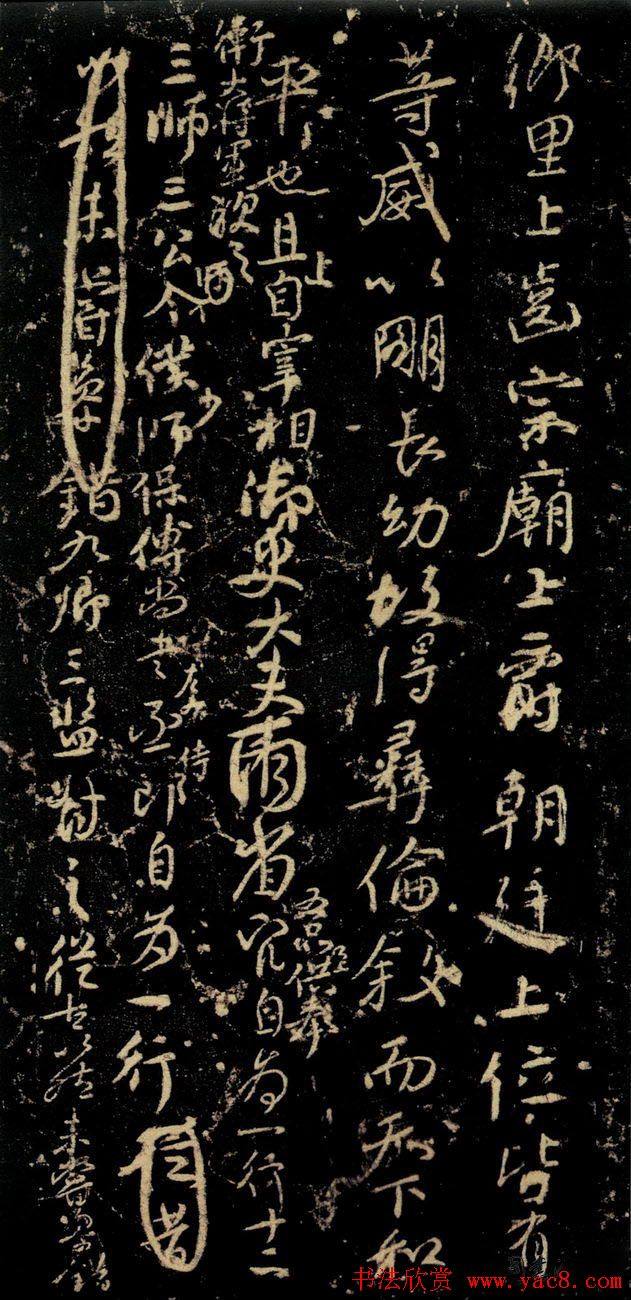 鄉里上齒宗廟上爵朝廷上位皆有
等威以明長幼故得彝倫敘而天下和
平也且上自宰相御史大夫兩省五品以上供奉官自為一行十二
衛大將軍次之
三師三公令僕少師保傅尚書左右丞侍郎自為一行
未嘗參錯九卿三監對之從古以然未嘗參錯
书法欣赏 www.yac8.com